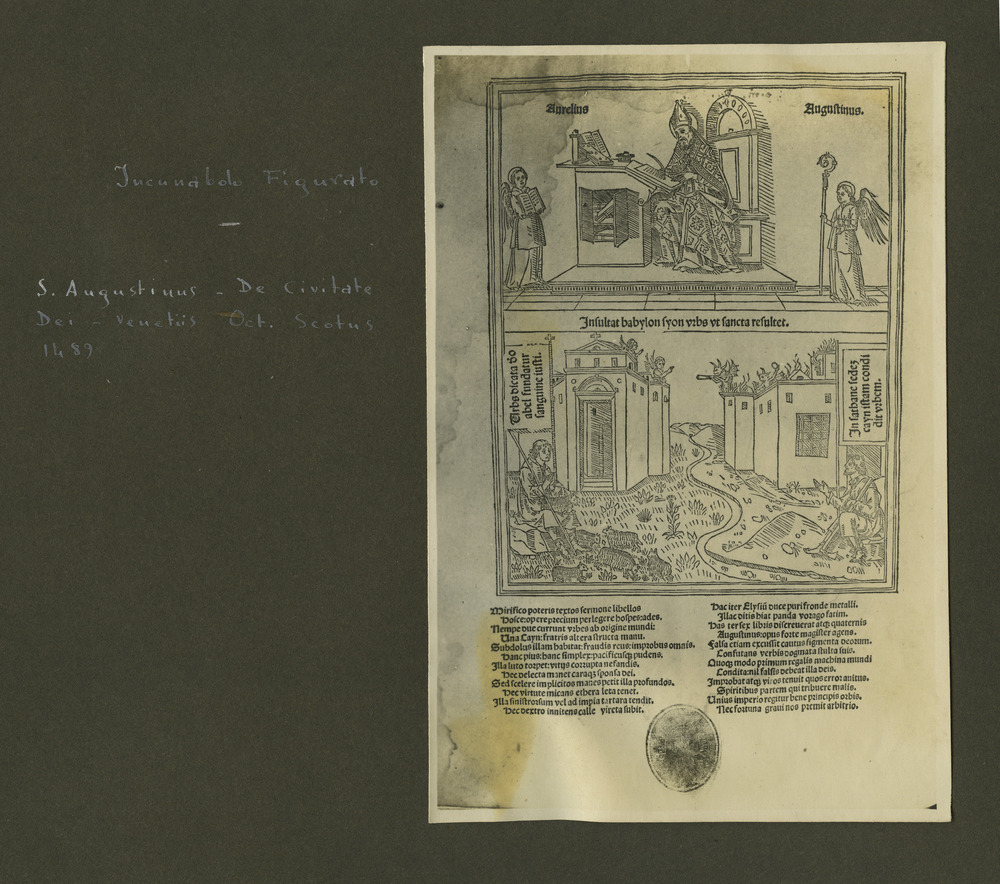 Incunabolo Figurato
—
S. Augustinus - De Civitate
Dei - Venetiis Oct. Scotus
1489
Aurelius
Augustinus.
Insultat babylon syon vrbs vt sancta resultet.
Urbs dicata deo
abel fundatur
sanguine iusti.
In sathane sedes
cayn istam condi
dit vrbem.
Mirifico poteris textos sermone libellos
Hosce: opere precium perlegere hospes: ades.
Nempe due currunt vrbes ab origine mundi:
Una Cayn: fratris altera structa manu.
Subdolus illam habitat: fraudis reus: improbus omnis.
Hanc pius: hanc simplex: pacificusq; pudens.
Illa luto torpet: vitijs corrupta nefandis.
Hec delecta manet caraq; sponsa dei.
Sed scelere implicitos manes petit illa profundos.
Hec virtute micans ethera leta tenet.
Illa sinistrorsum vel ad impia tartara tendit.
Hec dextro innitens calle vireta subit.
Hac iter Elysiū duce puri fronde metalli.
Illac ditis hiat panda vorago fatim.
Has ter sex libris discreuerat atq; quaternis
Augustinus: opus forte magister agens.
Falsa etiam excussit cautus figmenta deorum.
Confutans verbis dogmata stulta suis.
Quoq; modo primum regalis machina mundi
Condita: nil falsis debeat illa deis.
Improbat atq; viros tenuit quos error auitus.
Spiritibus partem qui tribuere malis.
Unius imperio regitur bene principis orbis.
Nec fortuna graui nos premit arbitrio.